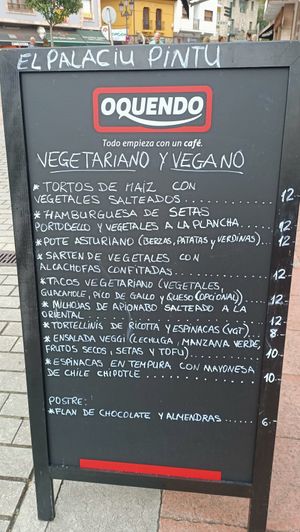 EL PALACIU PINTU
OQUENDO
Todo empieza con un café.
VEGETARIANO Y VEGANO
* TORTOS DE MAÍZ CON
VEGETALES SALTEADOS 12
* HAMBURGUESA DE SETAS
PORTOBELLO Y VEGETALES A LA PLANCHA 12
* POTE ASTURIANO (BERZAS, PATATAS Y VERDINAS) 12
* SARTEN DE VEGETALES CON
ALCACHOFAS CONFITADAS 12
* TACOS VEGETARIANO (VEGETALES,
GUACAMOLE, PICO DE GALLO Y QUESO (OPCIONAL) 12
* MILHOJAS DE APIONABO SALTEADO A LA
ORIENTAL 12
* TORTELLINIS DE RICOTTA Y ESPINACAS (VGT) 8
* ENSALADA VEGGI (LECHUGA, MANZANA VERDE,
FRUTOS SECOS, SETAS Y TOFU) 10
* ESPINACAS EN TEMPURA CON MAYONESA
DE CHILE CHIPOTLE 10
POSTRE:
* FLAN DE CHOCOLATE Y ALMENDRAS 6